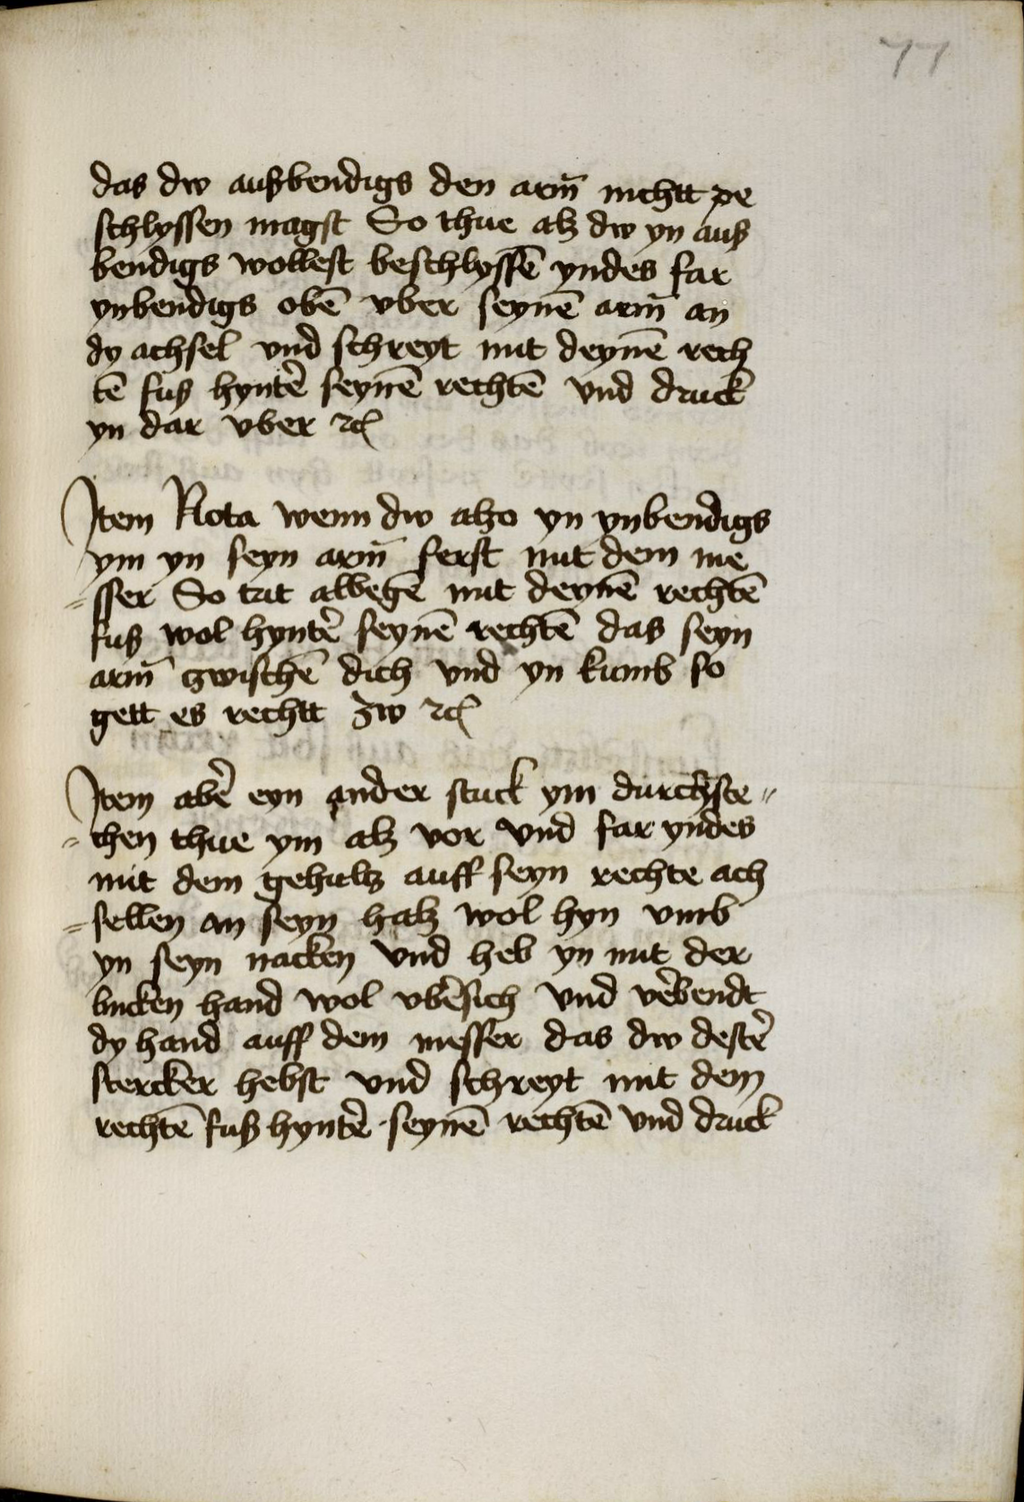 77
das dw außbendigs den arm̄ nichtt pe
schlyssen magst So thue alz dw yn auß
bendigs wollest beschlyssē yndes far
ynbendigs obē vber seynē arm̄ an
dy achsel vnd schreyt mit deynē rech
tē fuß hynter̄ seynē rechtē vnd druck
yn dar vber ꝛc
Item Nota wenn dw alzo yn ynbendigs
ym yn seyn arm̄ ferst mit dem me
=sser So trit albegē mit deynē rechtē
fuß wol hynter̄ seynē rechtē das seyn
arm̄ zwischē dich vnd yn kumb so
gett es rechtt zw ꝛc
Item aber̄ eyn ander stuck ym durchste=
=chen thue ym alz vor vnd far yndes
mit dem gehultz auff seyn rechte ach
=sellen an seyn halz wol hyn vmb
yn seyn nacken vnd heb yn mit der
lincken hand wol vber̄sich vnd ver̄bendt
dy hand auff dem messer das dw dester̄
stercker hebst vnd schreyt mit dem
rechtē fuß hynter̄ seynē rechtē vnd druck